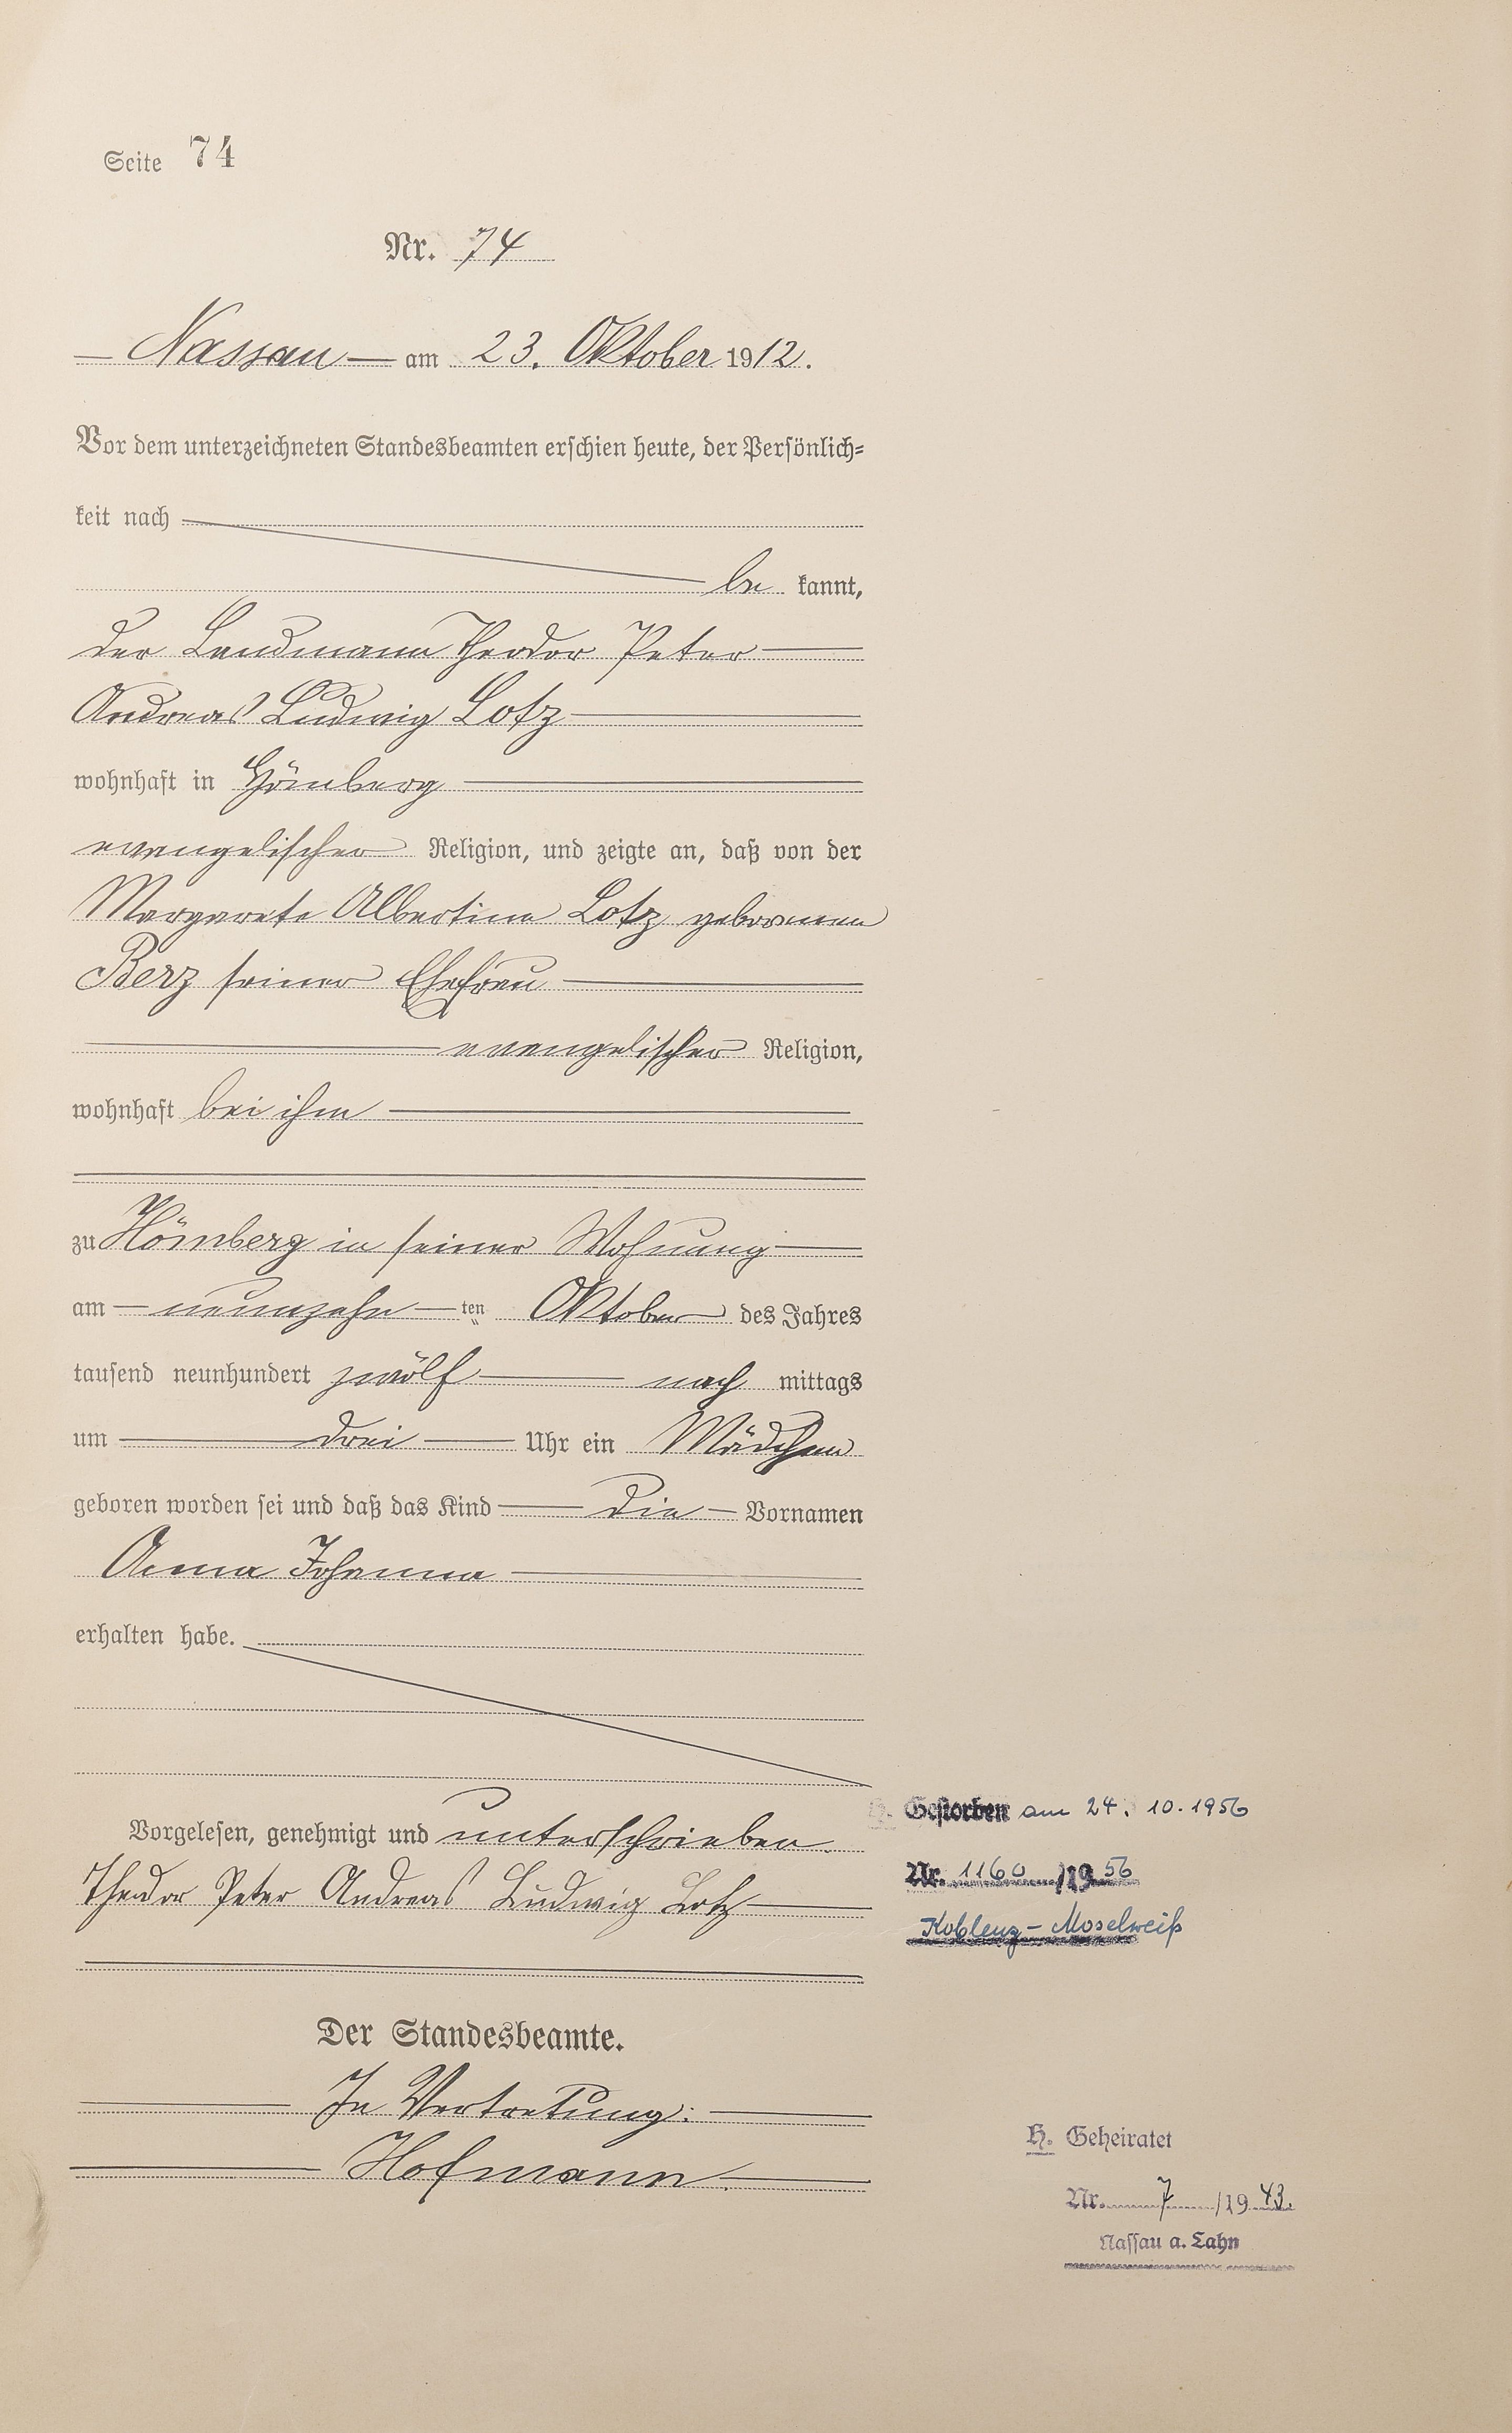 Seite 74
Nr. 74
Nassau am 23. Oktober 1912.
Vor dem unterzeichneten Standesbeamten erschien heute, der Persönlich-
keit nach
be kannt,
der Landmann Theodor Peter
Andreas Ludwig Lotz
wohnhaft in Hömberg
evangelischer Religion, und zeigte an, daß von der
Margarete Albertine Lotz geborenen
Berz seiner Ehefrau
evangelischer Religion,
wohnhaft bei ihm
zu Hömberg in seiner Wohnung
am neunzehn ten Oktober des Jahres
tausend neunhundert zwölf nach mittags
um drei Uhr ein Mädchen
geboren worden sei und daß das Kind die Vornamen
Anna Johanna
erhalten habe.
Vorgelesen, genehmigt und unterschrieben.
Theodor Peter Andreas Ludwig Lotz
Der Standesbeamte.
In Vertretung:
Hofmann.
Gestorben am 24. 10. 1956
Nr. 1160 /1956
Koblenz-Moselweiß
H. Geheiratet
Nr. 7 /1943.
Nassau a. Lahn